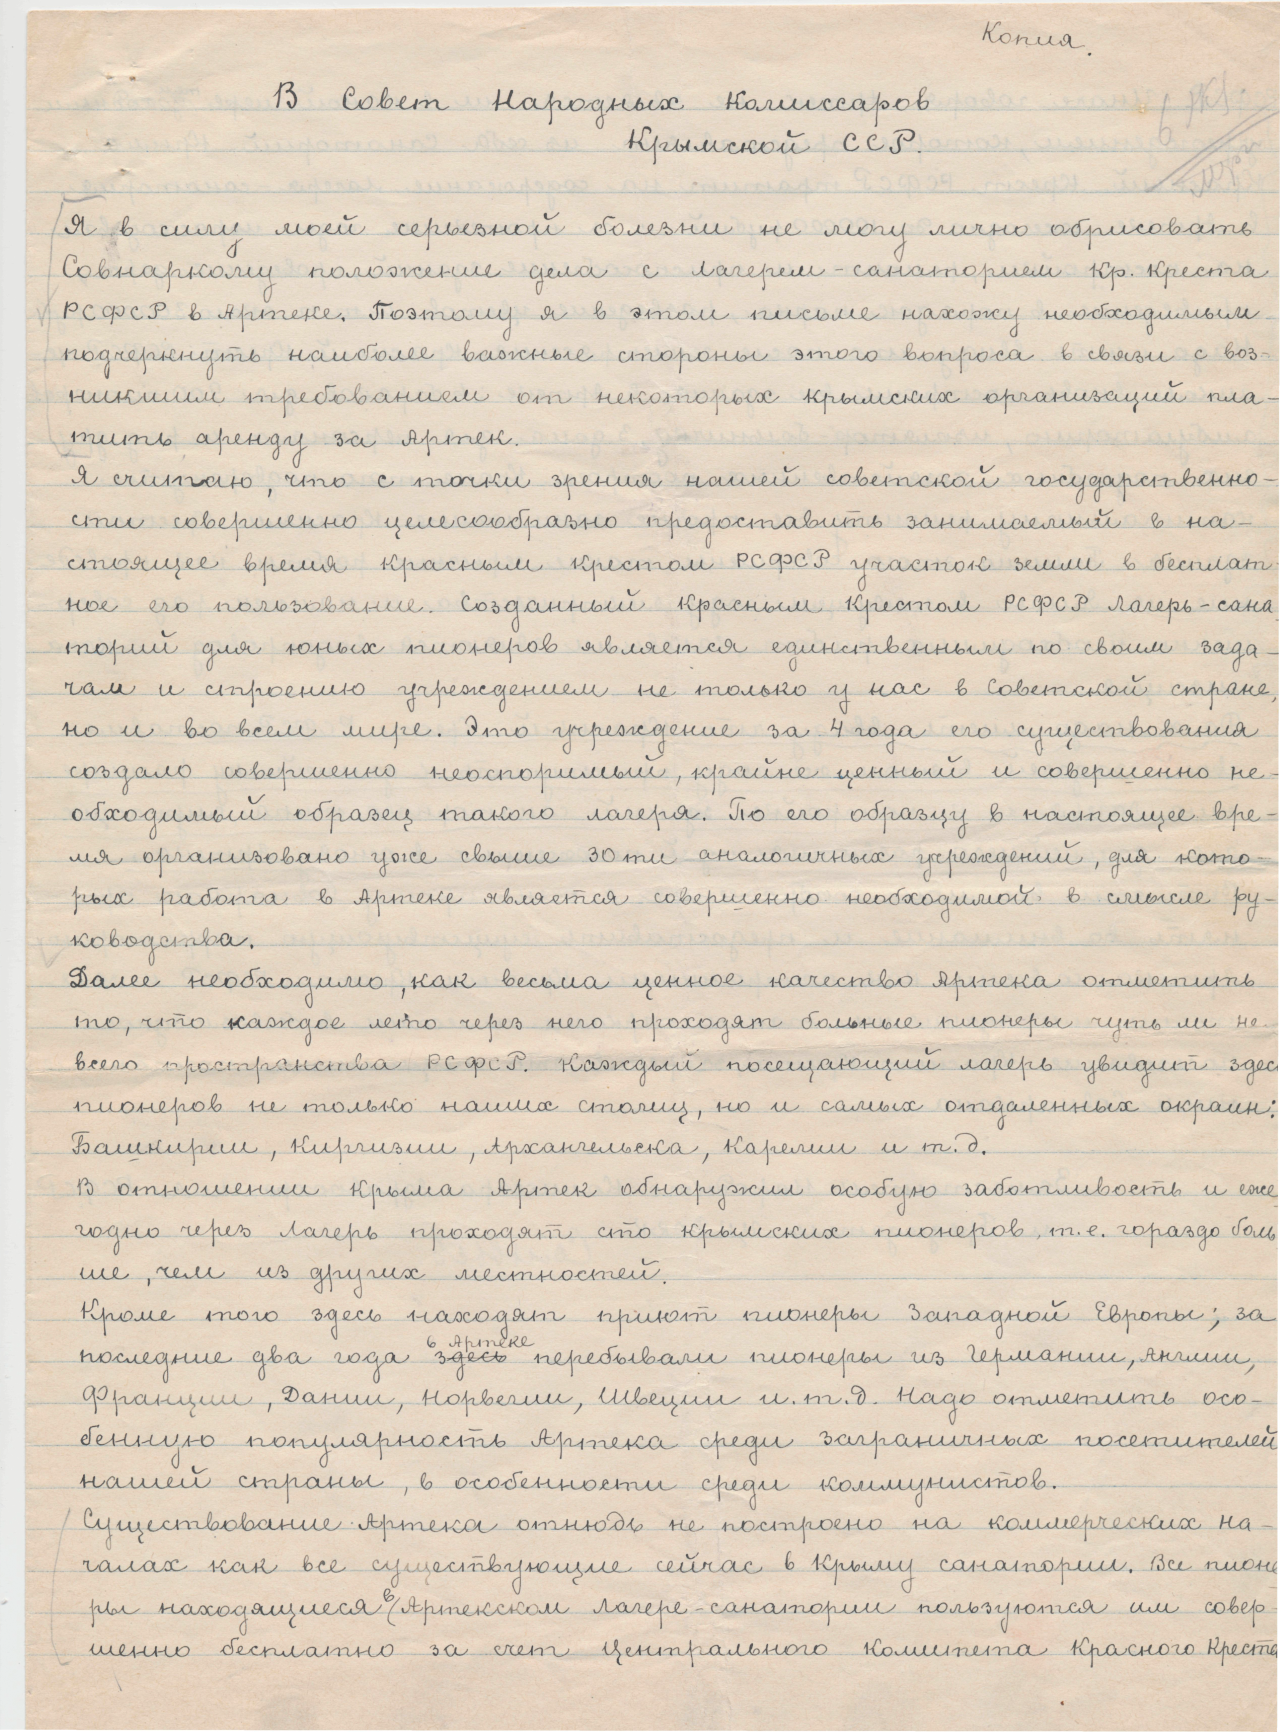 Копия.
В Совет Народных Комиссаров
Крымской ССР.
Я в силу моей серьезной болезни не могу лично обрисовать
Совнаркому положение дела с лагерем-санаторием Кр. Креста
РСФСР в Артеке. Поэтому я в этом письме нахожу необходимым
подчеркнуть наиболее важные стороны этого вопроса в связи с воз-
никшим требованием от некоторых крымских организаций пла-
тить аренду за Артек.
Я считаю, что с точки зрения нашей советской государственно-
сти совершенно целесообразно предоставить занимаемый в на-
стоящее время Красным Крестом РСФСР участок земли в бесплат
ное его пользование. Созданный Красным Крестом РСФСР Лагерь-сана
торий для юных пионеров является единственным по своим зада-
чам и строению учреждением не только у нас в Советской стране,
но и во всем мире. Это учреждение за 4 года его существования
создало совершенно неоспоримый, крайне ценный и совершенно не-
обходимый образец такого лагеря. По его образцу в настоящее вре-
мя организовано уже свыше 30ти аналогичных учреждений, для кото-
рых работа в Артеке является совершенно необходимой в смысле ру-
ководства.
Далее необходимо, как весьма ценное качество Артека отметить
то, что каждое лето через него проходят больные пионеры чуть ли не
всего пространства РСФСР. Каждый посещающий лагерь увидит здес
пионеров не только наших столиц, но и самых отдаленных окраин:
Башкирии, Киргизии, Архангельска, Карелии и т.д.
В отношении Крыма Артек обнаружил особую заботливость и еже
годно через Лагерь проходят сто крымских пионеров, т.е. гораздо боль
ше, чем из других местностей.
Кроме того здесь находят приют пионеры Западной Европы; за
в Артеке
последние два года здесь перебывали пионеры из Германии, Англии,
Франции, Дании, Норвегии, Швеции и т.д. Надо отметить осо-
бенную популярность Артека среди заграничных посетителей
нашей страны, в особенности среди коммунистов.
Существование Артека отнюдь не построено на коммерческих на-
чалах как все существующие сейчас в Крыму санатории. Все пионе
ры находящиеся в Артекском лагере-санатории пользуются им совер-
шенно бесплатно за счет Центрального Комитета Красного Креста